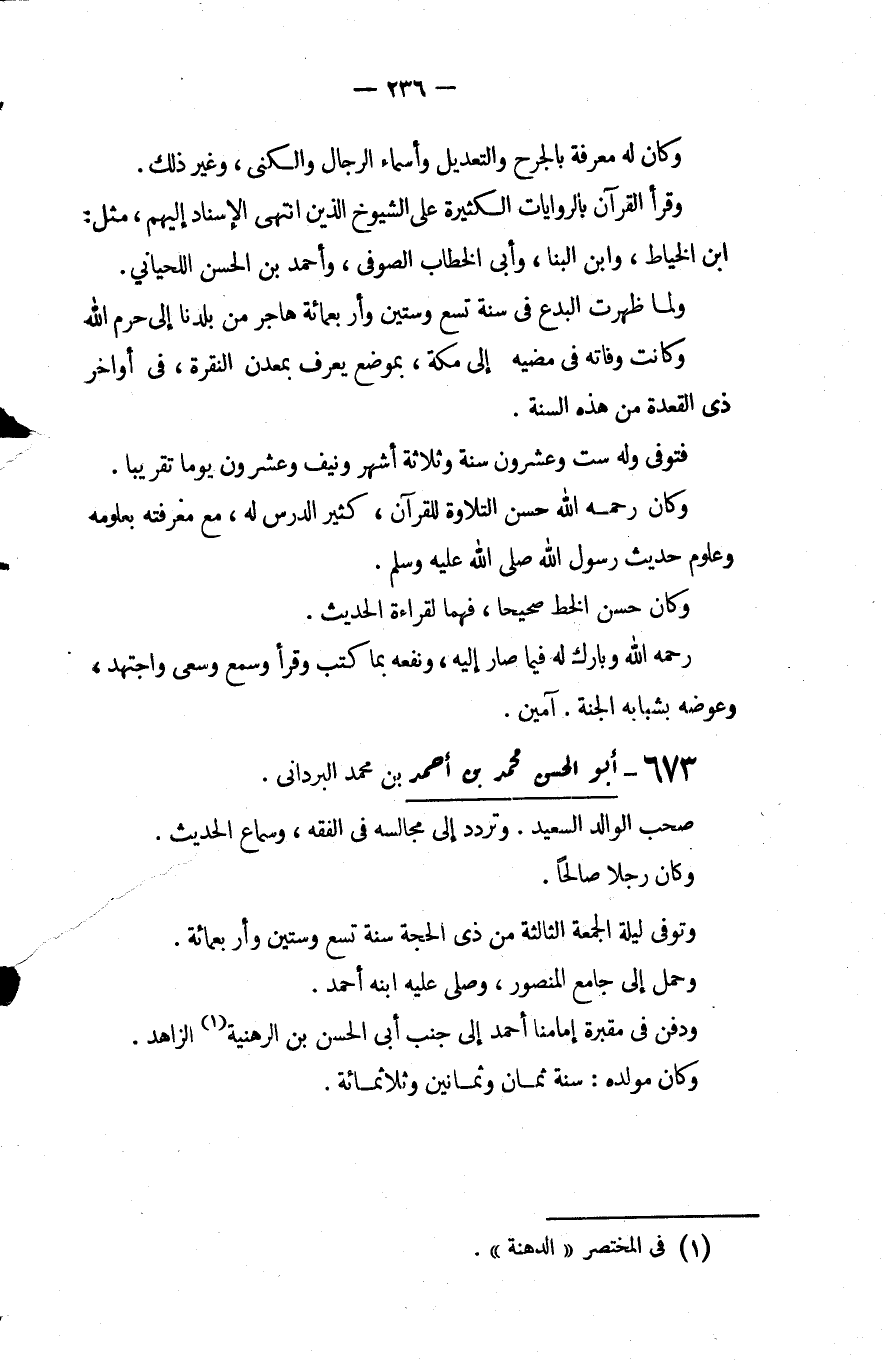 — ٢٣٦ —
وكان له معرفة بالجرح والتعديل وأسماء الرجال والكنى ، وغير ذلك .
وقرأ القرآن بالروايات الكثيرة على الشيوخ الذين انتهى الإسناد إليهم ، مثل :
ابن الخياط ، وابن البنا ، وأبى الخطاب الصوفى ، وأحمد بن الحسن اللحياني .
ولما ظهرت البدع فى سنة تسع وستين وأربعمائة هاجر من بلدنا إلى حرم الله
وكانت وفاته فى مضيه إلى مكة ، بموضع يعرف بمعدن النقرة ، فى أواخر
ذى القعدة من هذه السنة .
فتوفى وله ست وعشرون سنة وثلاثة أشهر ونيف وعشرون يوما تقريبا .
وكان رحمه الله حسن التلاوة للقرآن ، كثير الدرس له ، مع معرفته بعلومه
وعلوم حديث رسول الله صلى الله عليه وسلم .
وكان حسن الخط صحيحا ، فهما لقراءة الحديث .
رحمه الله وبارك له فيما صار إليه ، ونفعه بما كتب وقرأ وسمع وسعى واجتهد ،
وعوضه بشبابه الجنة . آمين .
٦٧٣ - أبو الحسن محمد بن أحمد بن محمد البردانى .
صحب الوالد السعيد . وتردد إلى مجالسه فى الفقه ، وسماع الحديث .
وكان رجلا صالحاً .
وتوفى ليلة الجمعة الثالثة من ذى الحجة سنة تسع وستين وأربعمائة .
وحمل إلى جامع المنصور ، وصلى عليه ابنه أحمد .
ودفن فى مقبرة إمامنا أحمد إلى جنب أبى الحسن بن الرهنية(١) الزاهد .
وكان مولده : سنة ثمان وثمانين وثلاثمائة .
(١) فى المختصر « الدهنة » .